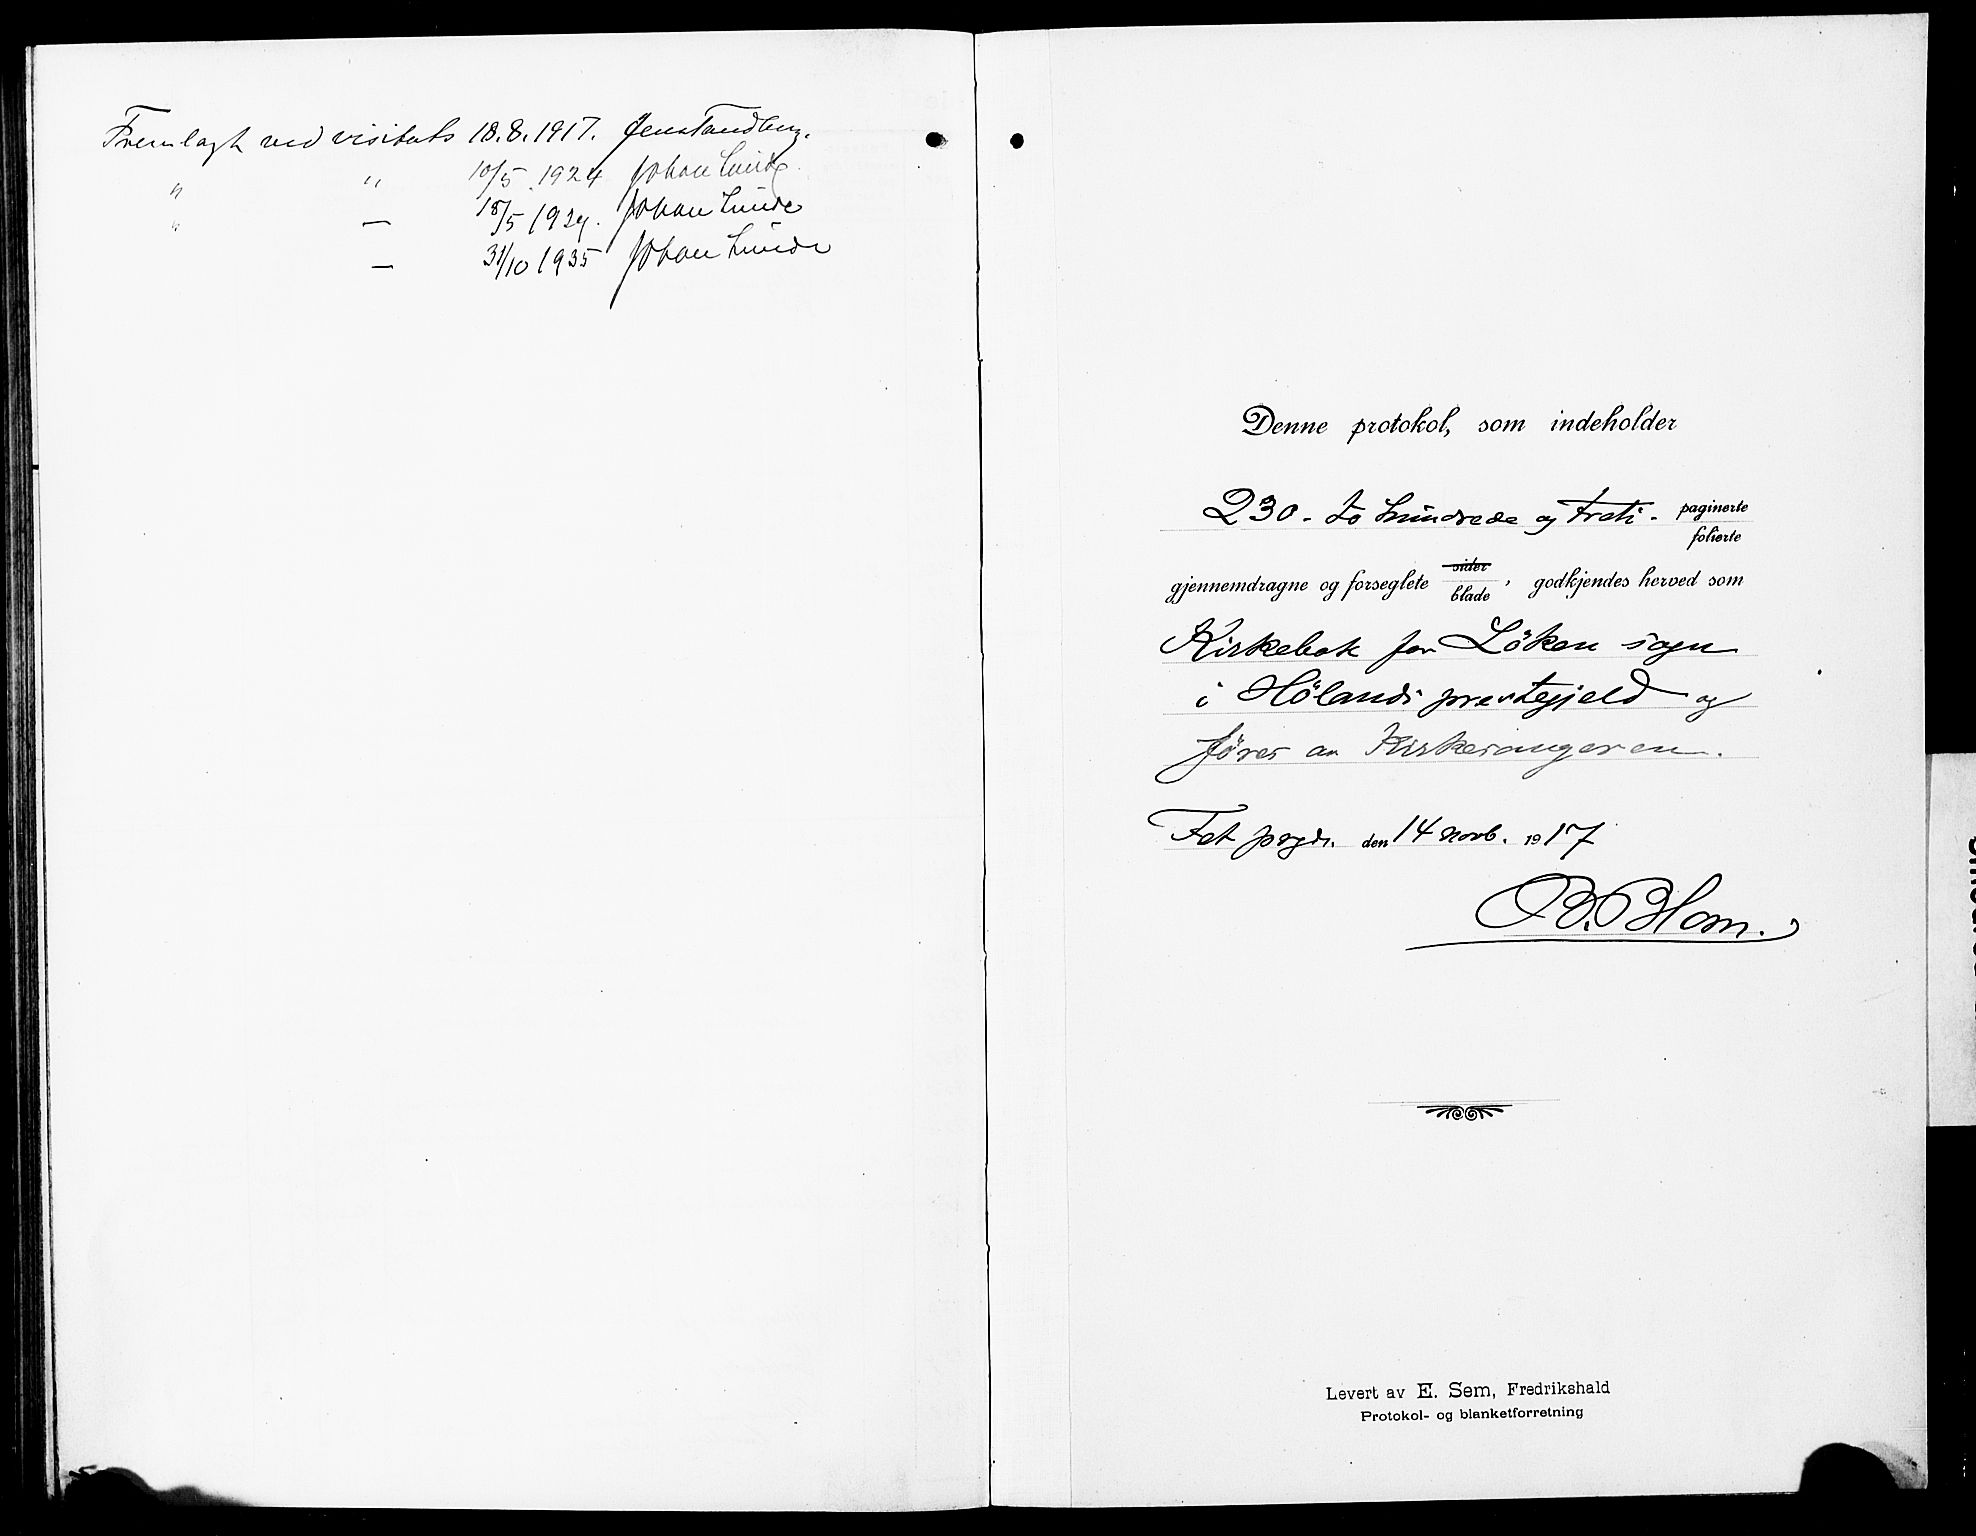 Fremlagt ved visitats 18.8.1917. Jens Tandberg.
" " 10/5 1924 Johan Lunde
" — 18/5 1929. Johan Lunde
— 31/10 1935 Johan Lunde
Denne protokol, som indeholder
230 - to hundrede og treti - paginerte
folierte
gjennemdragne og forseglete sider
blade, godkjendes herved som
Kirkebok for Löken sogn
i Hölands prestegjeld og
föres av Kirkesangeren.
Fet prgd. den 14 novb. 1917
B. Blom.
Levert av E. Sem, Fredrikshald
Protokol- og blanketforretning